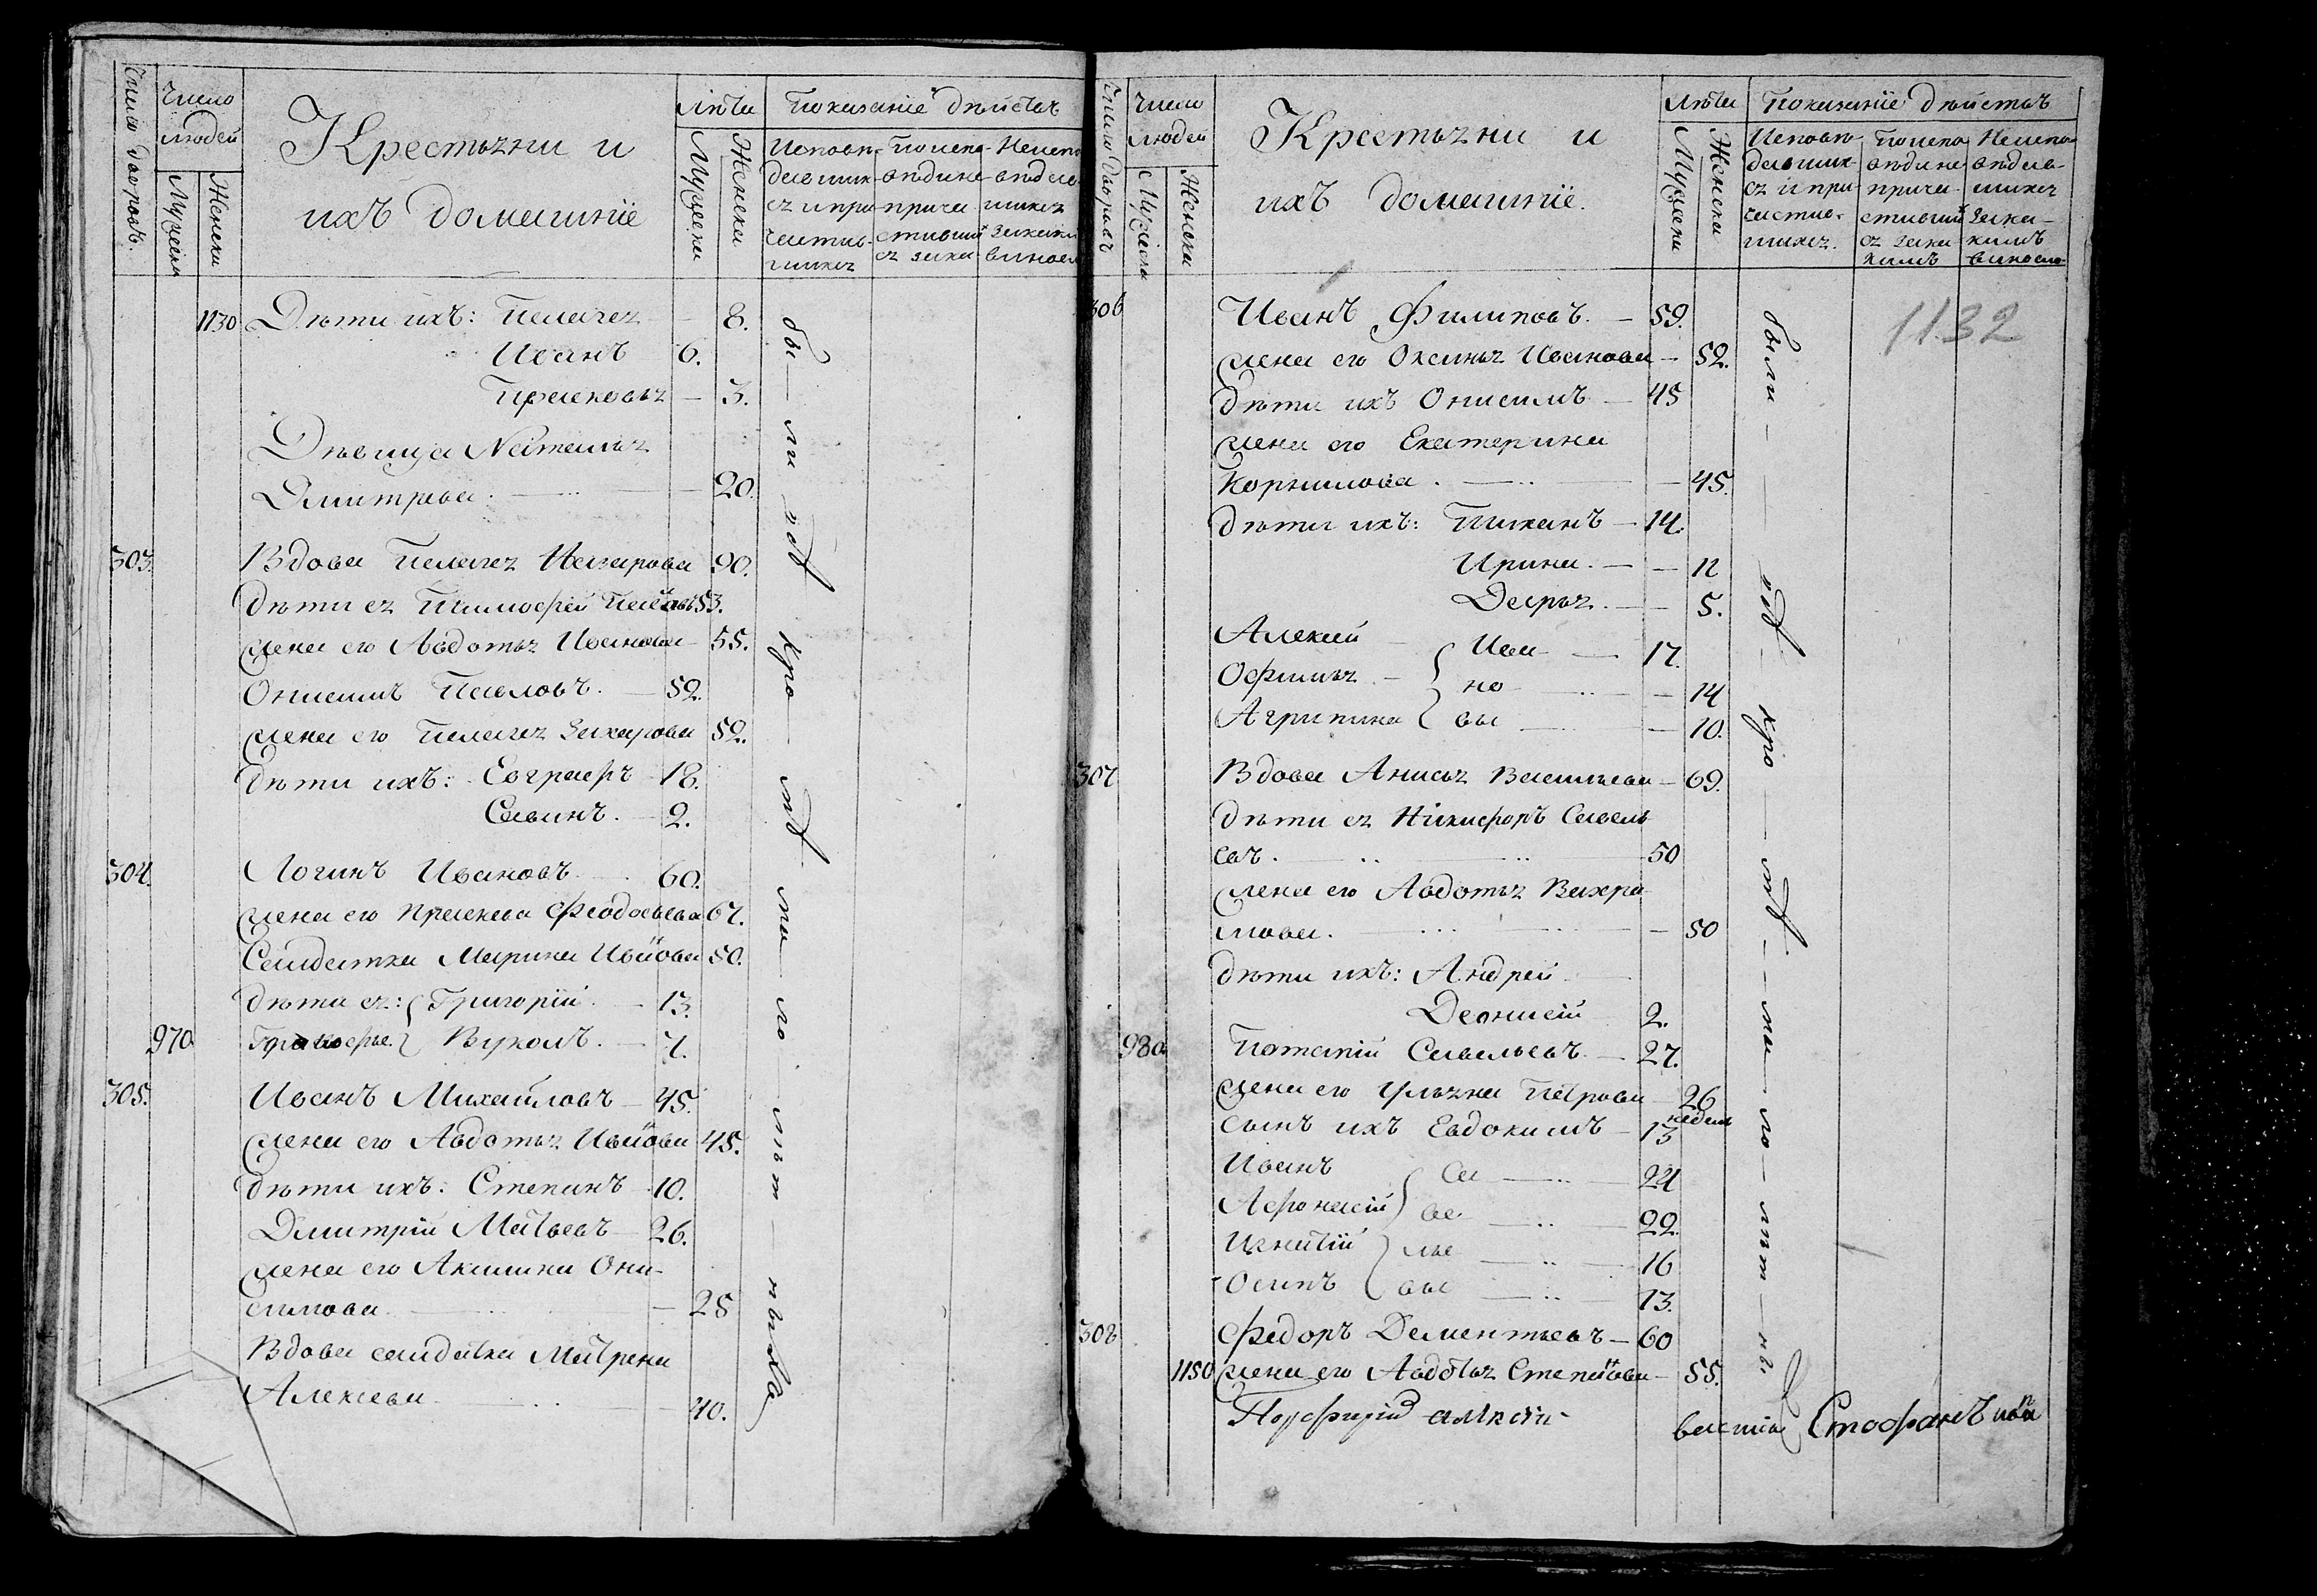 Число дворовъ.
Число людей
Мужеска
Женска
Крестьяни и
ихъ домашніе
Лѣта
Мужеска
Женска
Показаніе дѣйствъ
Исповѣ-
давших-
ся и при-
частив-
шихся
По испо-
вѣди не
прича-
стивших
ся
Неиспо-
вѣдав-
шихся
1130 Дѣти ихъ: Пелагея — 8.
Иванъ 6.
Прасковья — 3.
Дѣвица Наталья
Дмитрева. — 20.
303. Вдова Пелагея Назарова 90.
Дѣти ея Тимофей 53.
жена его Авдотья Иванова 55.
Онисимъ Павловъ. — 52.
жена его Пелагея Захарова 52.
Дѣти ихъ: Евграфъ 18.
Савинъ. 2.
304. Логинъ Ивановъ. 60.
жена его Праскева Феодосьева 67.
Салдатка Марина Иванова 50.
дѣти ея: Григорій. — 13.
970. Вуколъ. — 7.
305. Иванъ Михайловъ — 45.
жена его Авдотья Иванова 45.
дѣти ихъ: Степанъ 10.
Дмитрій Матвеевъ 26.
жена его Акилина Они-
симова. — 25
Вдова салдатка Матрена
Алексева. — 40.
бы — ли у св кро — ми — ло — лѣт — ныха
Число дворовъ
Число людей
Мужеска
Женска
Крестьяни и
ихъ домашніе.
Лѣта
Мужеска
Женска
Показаніе дѣйствъ
Исповѣ-
давших-
ся и при-
частив-
шихся.
По испо
вѣди не
прича-
стивших
ся
Неиспо-
вѣдав-
шихся
1132
306 Иванъ Филиповъ. — 59.
жена его Оксинья Иванова — 52.
дѣти ихъ Онисимъ — 45
жена его Екатерина
Корнилова. — 45.
дѣти ихъ: — 14.
Ирина. — 12
Дарья. — 5.
Алексей — Ива — 17.
Офимья — но — 14
Агрипина вы — 10.
307 Вдова Анисья Васильева — 69.
дѣти ея Никифоръ Савель
евъ. — 50
жена его Авдотья Вахра
мова. — 50
дѣти ихъ: Андрей
Деонисій 2.
980 Потапій Савельевъ. — 27.
жена его Ульяна Петрова 26
сынъ ихъ Евдокимъ — 13 недель
Иванъ Са — 24
Афонасій ве — 22
Игнатій лье — 16
Осипъ вы — 13.
308 Федоръ Дементьевъ — 60
1150 жена его Авдотья Степанова — 55.
были — кро — ми — ло — лѣт — ны.
Порфирій
Стефанъ